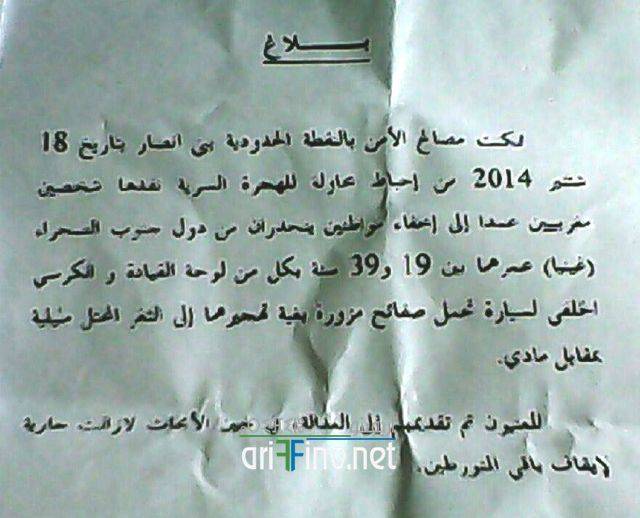 بـــلاغ
تمكنت مصالح الأمن بالنقطة الحدودية بني انصار بتاريخ 18
شتنبر 2014 من إحباط محاولة للهجرة السرية نفذها شخصين
مغربيين عمدا إلى إخفاء مواطنين ينحدران من دول جنوب الصحراء
(غينيا) عمرهما بين 19 و39 سنة بكل من لوحة القيادة و الكرسي
الخلفي لسيارة تحمل صفائح مزورة بغية تهجيرهما إلى الثغر المحتل مليلية
بمقابل مادي.
المعنيون تم تقديمهم إلى العدالة في حين الأبحاث لازالت جارية
لإيقاف باقي المتورطين.
ariFFino.net